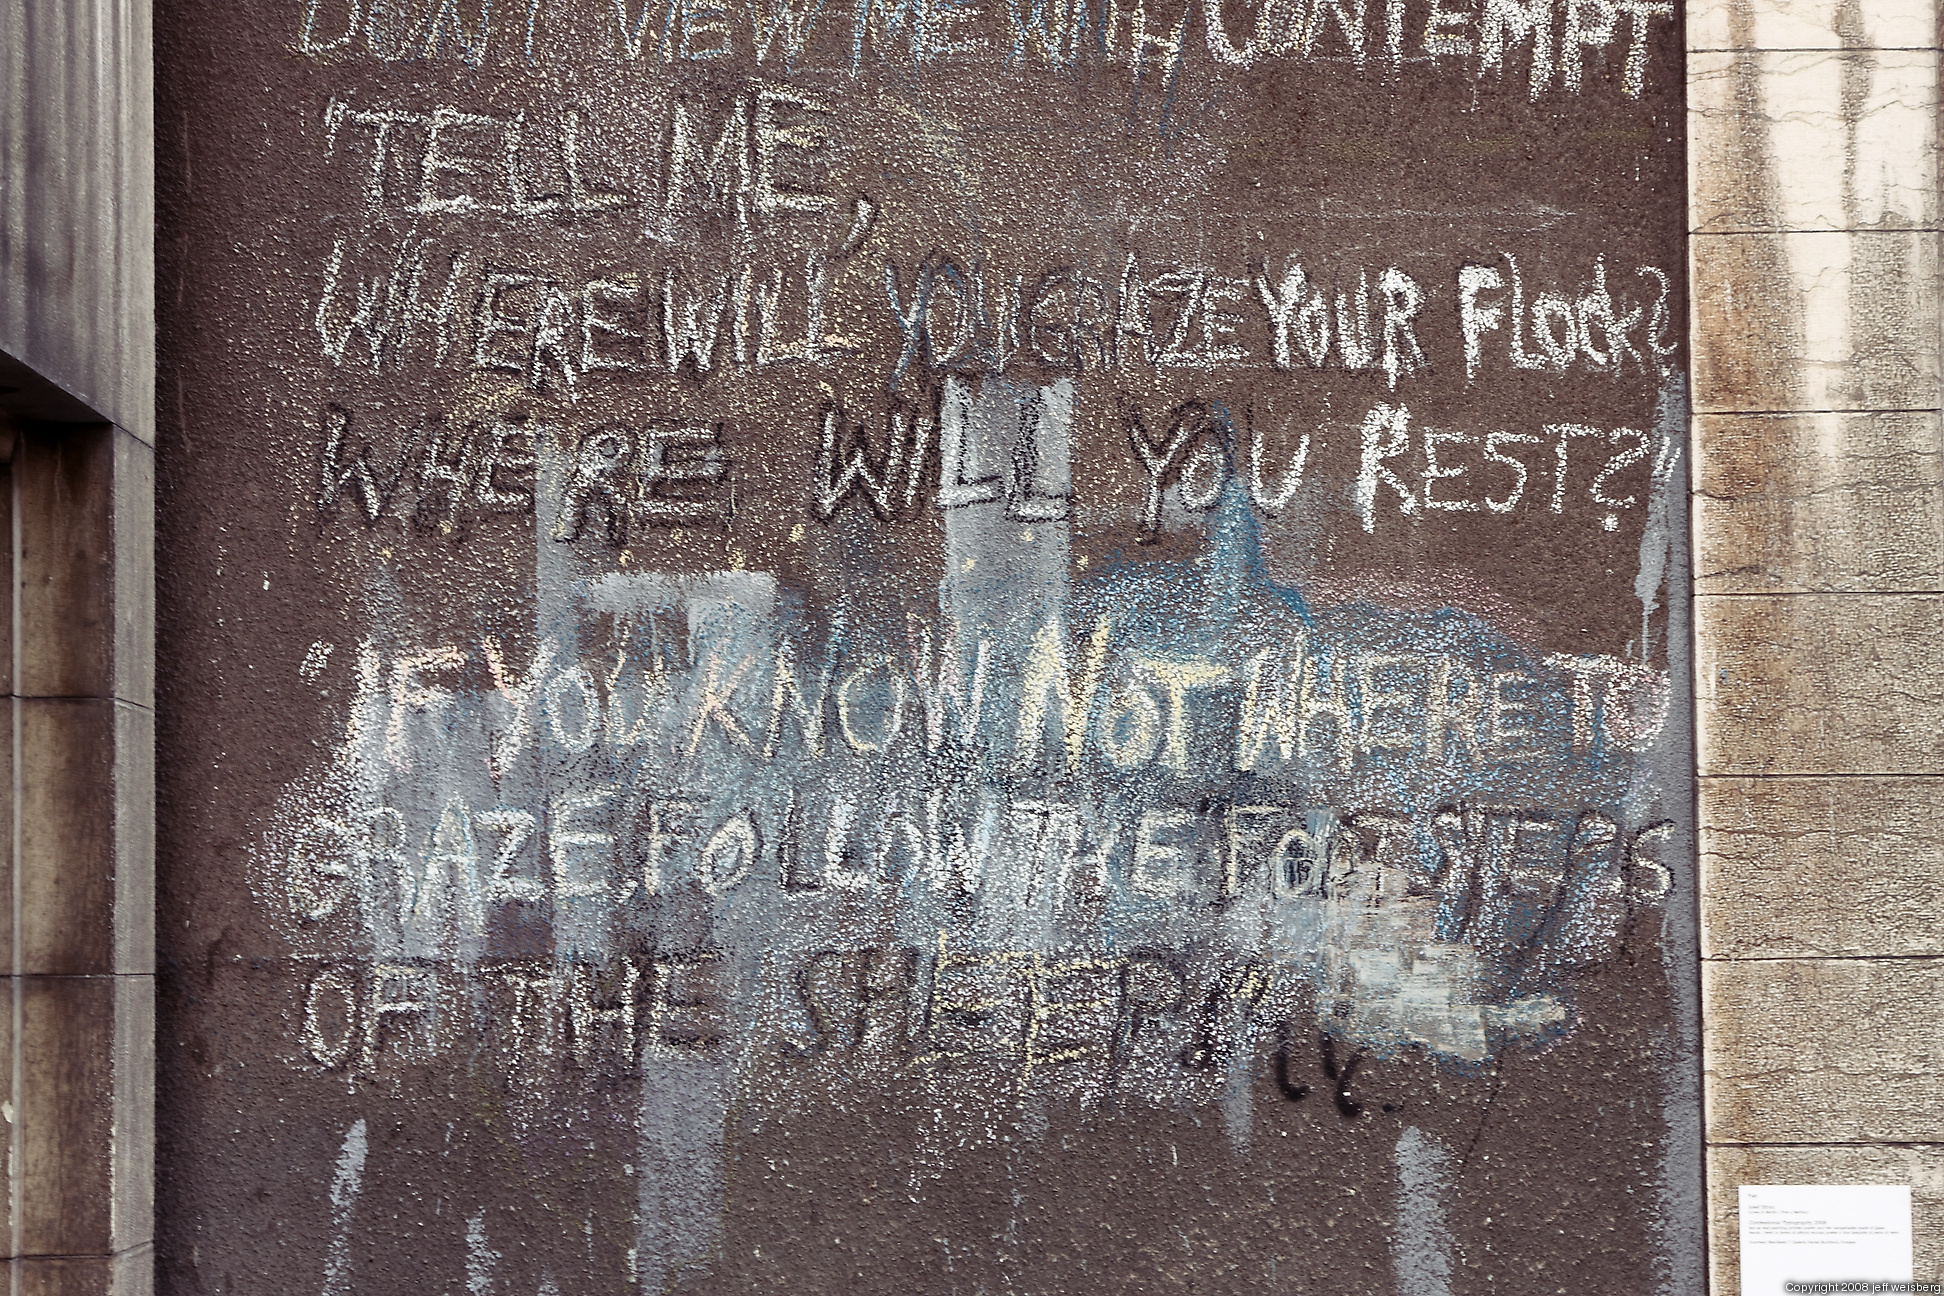 DON'T VIEW ME WITH CONTEMPT
"TELL ME,
WHERE WILL YOU GRAZE YOUR FLOCK?
WHERE WILL YOU REST?"
"IF YOU KNOW NOT WHERE TO
GRAZE, FOLLOW THE FOOTSTEPS
OF THE SHEEP."
Copyright 2008 jeff weisberg